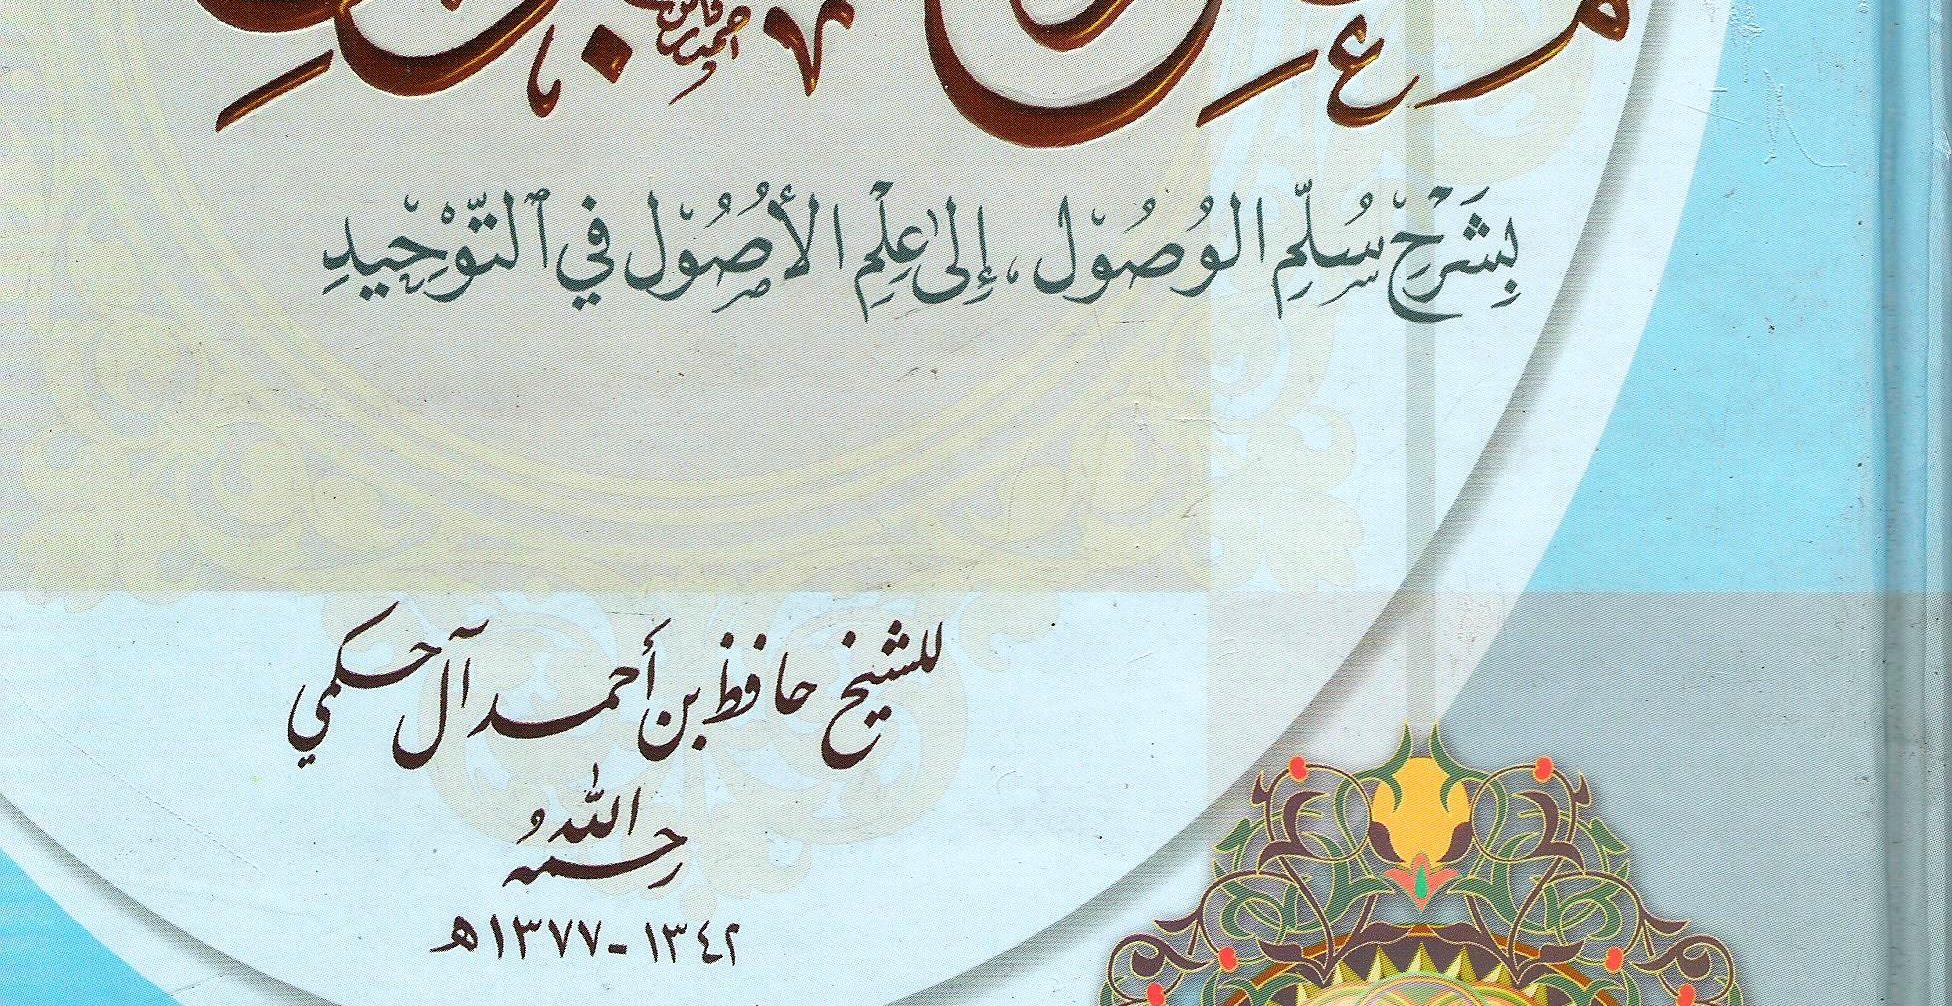 بِشَرْحِ سُلَّمِ الوُصُوْل، إِلَى عِلْمِ الأُصُوْل فِي ٱلتَّوْحِيْدِ
للشيخ حافظ بن أحمد آل حكمي
رحمه اللهُ
١٣٤٢ - ١٣٧٧ هـ